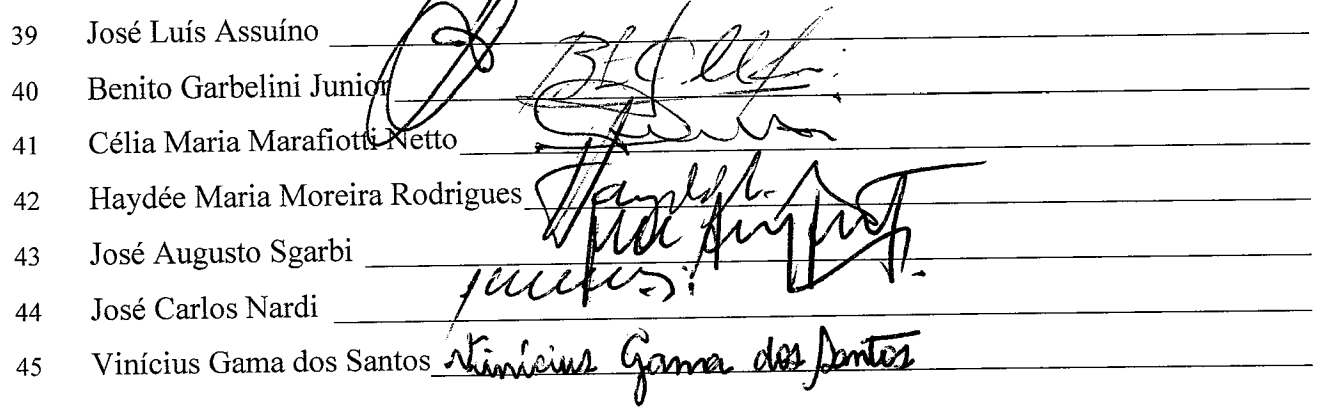 39 José Luís Assuíno
40 Benito Garbelini Junior
41 Célia Maria Marafiotti Netto
42 Haydée Maria Moreira Rodrigues
43 José Augusto Sgarbi
44 José Carlos Nardi
45 Vinícius Gama dos Santos Vinícius Gama dos Santos